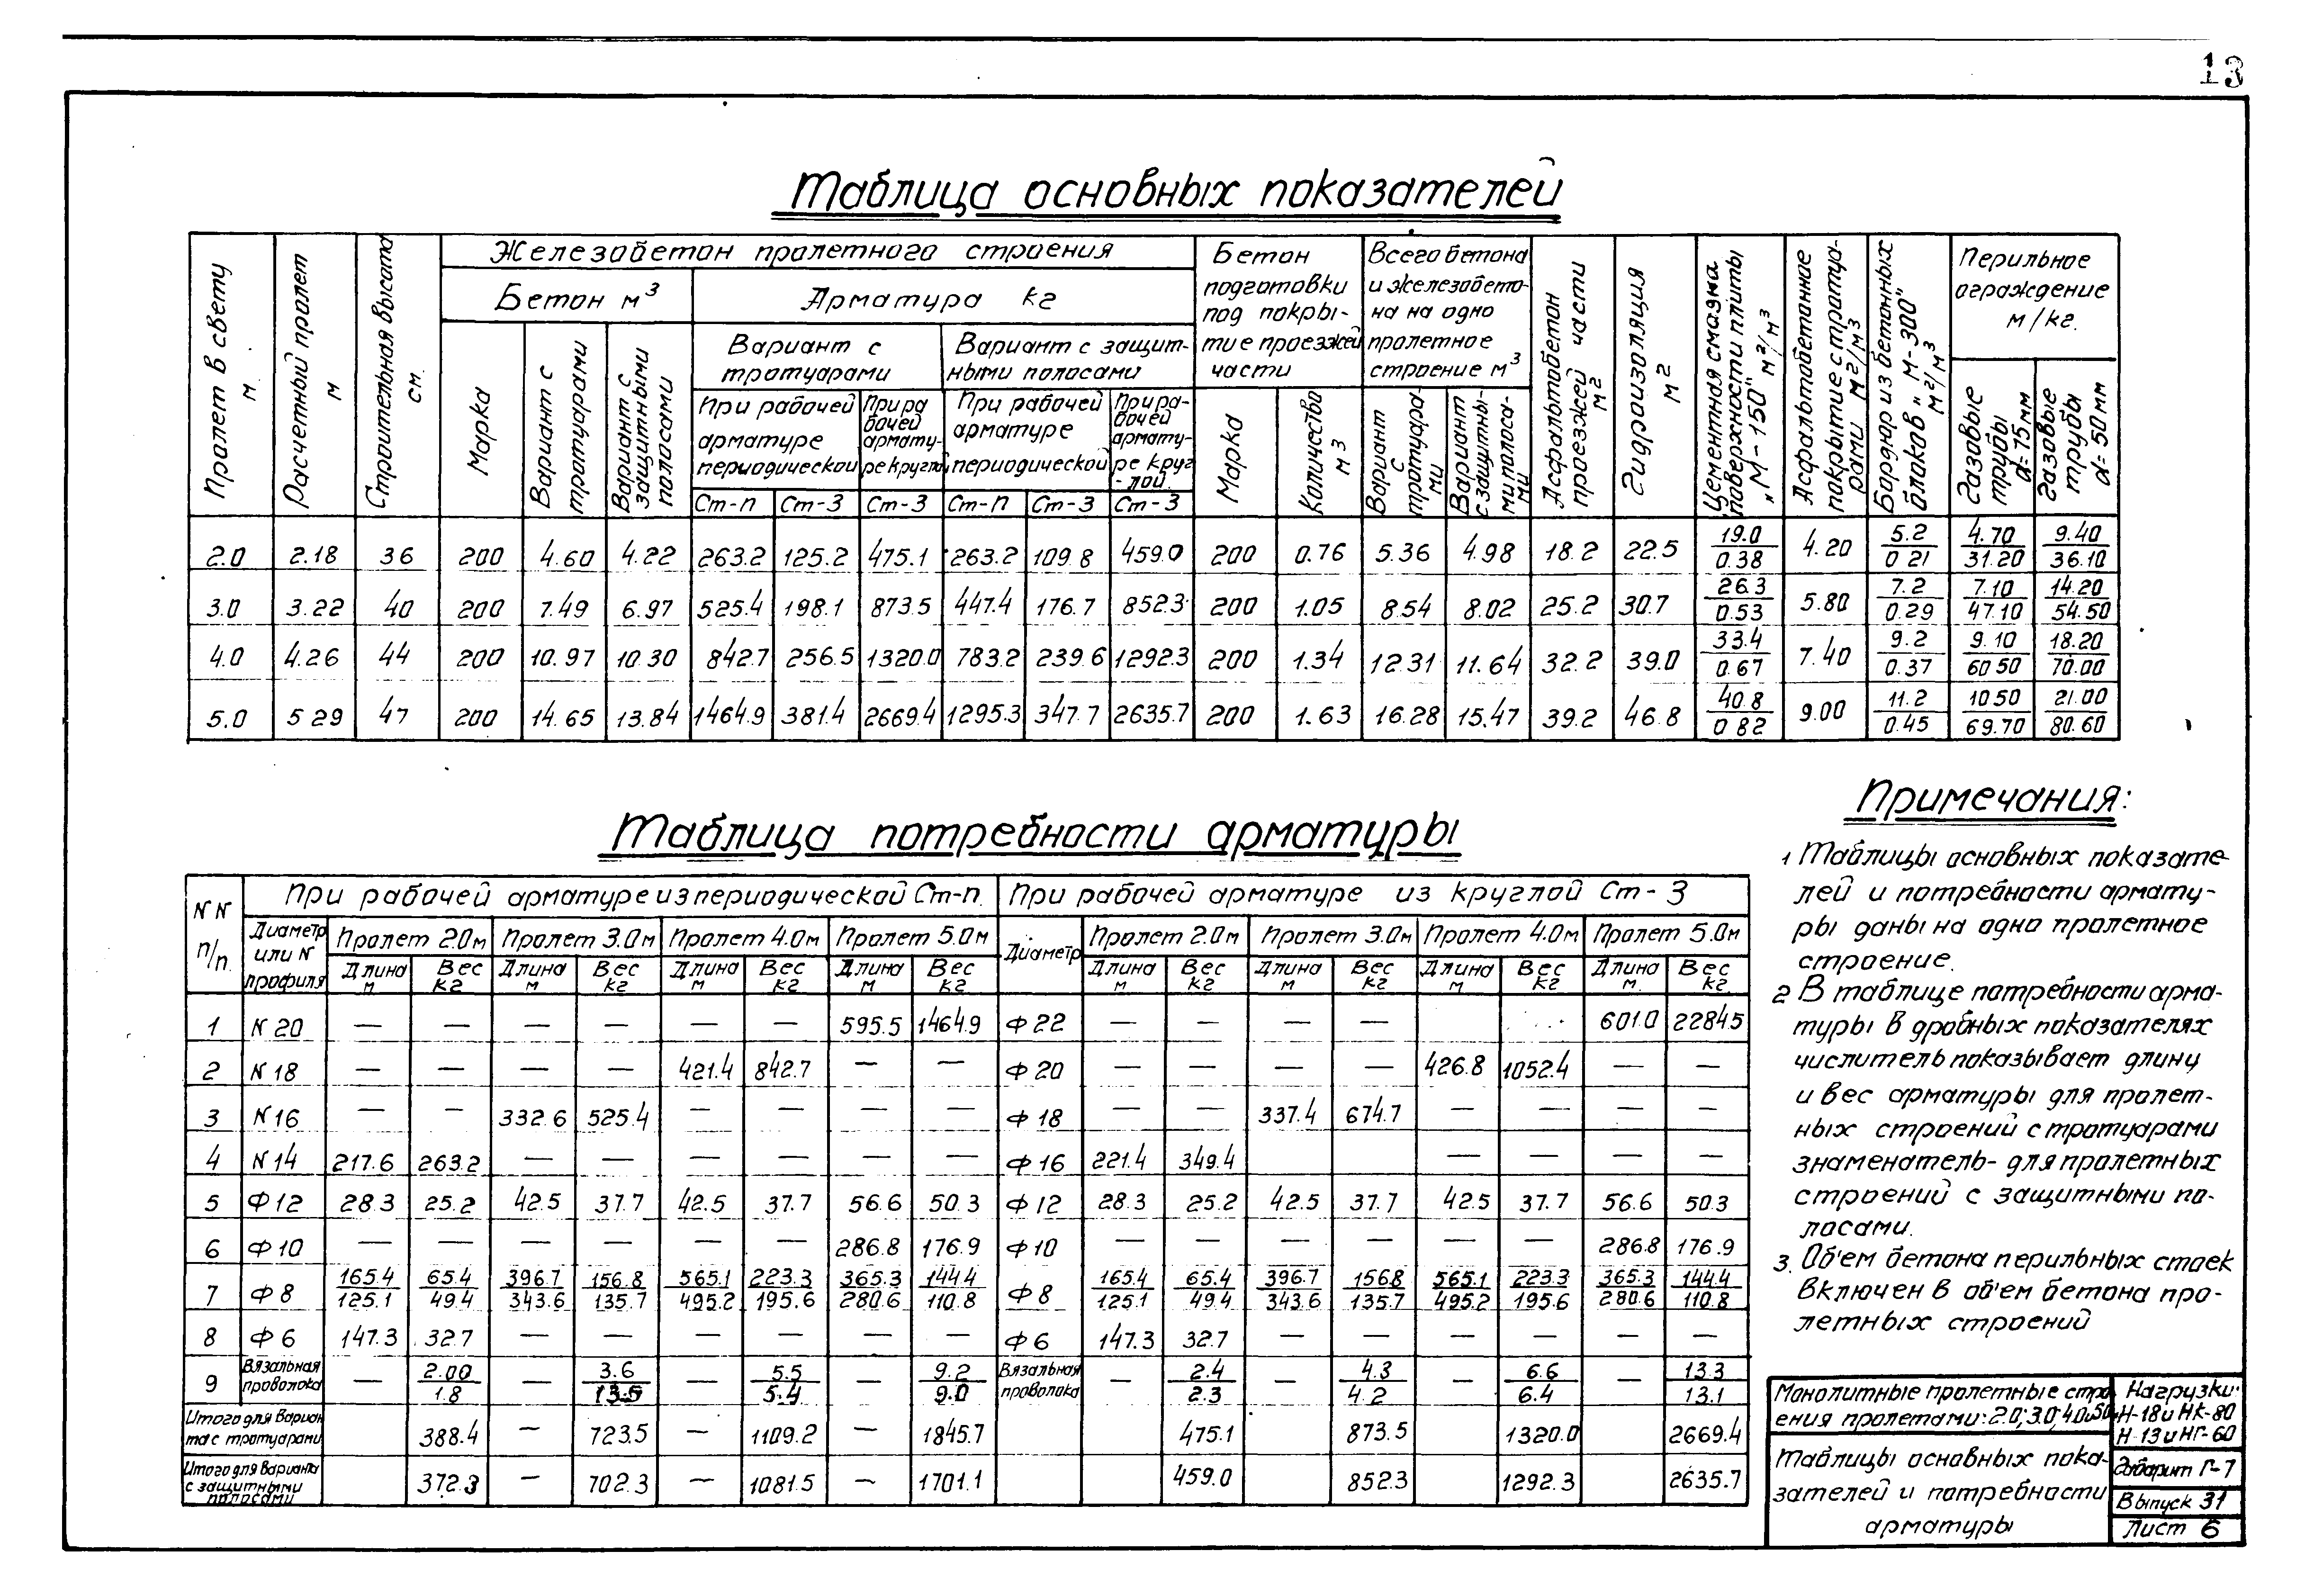 13
Таблица основных показателей
Пролет в свету м.
Расчетный пролет м
Строительная высота см.
Железобетон пролетного строения
Бетон м³
Арматура кг
Марка
Вариант с тротуарами
Вариант с защитными полосами
Вариант с тротуарами
Вариант с защит-ными полосами
При рабочей арматуре периодической
При ра бочей армату-ре круглой
При рабочей арматуре периодической
При ра-бочей армату-ре круг-лой
Ст-п Ст-3 Ст-3 Ст-п Ст-3 Ст-3
Бетон подготовки под покры-тие проезжей части
Марка
Количество м³
Всего бетона и железобето-на на одно пролетное строение м³
Вариант с тротуара ми
Вариант с защитны-ми полоса-ми
Асфальтобетон проезжей части м²
Гидроизоляция м²
Цементная смазка поверхности плиты „М-150" м²/м³
Асфальтобетонное покрытие тротуа-рами м²/м³
Бордюр из бетонных блоков „М-300" м²/м³
Перильное ограждение м/кг.
Газовые трубы d=75мм
Газовые трубы d=50мм
2.0 2.18 36 200 4.60 4.22 263.2 125.2 475.1 263.2 109.8 459.0 200 0.76 5.36 4.98 18.2 22.5 19.0/0.38 4.20 5.2/0 21 4.70/31.20 9.40/36.10
3.0 3.22 40 200 7.49 6.97 525.4 198.1 873.5 447.4 176.7 852.3 200 1.05 8.54 8.02 25.2 30.7 26.3/0.53 5.80 7.2/0.29 7.10/47.10 14.20/54.50
4.0 4.26 44 200 10.97 10.30 842.7 256.5 1320.0 783.2 239.6 1292.3 200 1.34 12.31 11.64 32.2 39.0 33.4/0.67 7.40 9.2/0.37 9.10/60 50 18.20/70.00
5.0 5 29 47 200 14.65 13.84 1464.9 381.4 2669.4 1295.3 347.7 2635.7 200 1.63 16.28 15.47 39.2 46.8 40.8/0 82 9.00 11.2/0.45 10 50/69.70 21.00/80.60
Таблица потребности арматуры
NN п/п.
При рабочей арматуре из периодической Ст-п.
При рабочей арматуре из круглой Ст-3
Диаметр или N профиля Пролет 2.0м Пролет 3.0м Пролет 4.0м Пролет 5.0м Диаметр Пролет 2.0м Пролет 3.0м Пролет 4.0м Пролет 5.0м
Длина м Вес кг Длина м Вес кг Длина м Вес кг Длина м Вес кг Длина м Вес кг Длина м Вес кг Длина м Вес кг Длина м. Вес кг.
1 N 20 — — — — — — 595.5 1464.9 Ф 22 — — — — 601.0 22845
2 N 18 — — — — 421.4 842.7 — — Ф 20 — — — — 426.8 1052.4 — —
3 N 16 — — 332.6 525.4 — — — — Ф 18 — — 337.4 674.7 — — — —
4 N 14 217.6 263.2 — — — — — — Ф 16 221.4 349.4 — — — —
5 Ф 12 28.3 25.2 42.5 37.7 42.5 37.7 56.6 50.3 Ф 12 28.3 25.2 42.5 37.7 42.5 37.7 56.6 50.3
6 Ф 10 — — — — — — 286.8 176.9 Ф 10 — — — — — — 286.8 176.9
7 Ф 8 165.4/125.1 65.4/49.4 396.7/343.6 156.8/135.7 565.1/495.2 223.3/195.6 365.3/280.6 144.4/110.8 Ф 8 165.4/125.1 65.4/49.4 396.7/343.6 156.8/135.7 565.1/495.2 223.3/195.6 365.3/280.6 144.4/110.8
8 Ф 6 147.3 32.7 — — — — — — Ф 6 147.3 32.7 — — — — — —
9 Вязальная проволока — 2.00/1.8 — 3.6/13.5 — 5.5/5.4 — 9.2/9.0 Вязальная проволока — 2.4/2.3 — 4.3/4.2 — 6.6/6.4 — 13.3/13.1
Итого для вариан та с тротуарами 388.4 — 723.5 — 1109.2 — 1845.7 475.1 873.5 1320.0 2669.4
Итого для варианта с защитными полосами 372.3 — 702.3 — 1081.5 — 1701.1 459.0 852.3 1292.3 2635.7
Примечания:
1 Таблицы основных показате-
лей и потребности армату-
ры даны на одно пролетное
строение.
2 В таблице потребности арма-
туры в дробных показателях
числитель показывает длину
и вес арматуры для пролет-
ных строений с тротуарами
знаменатель- для пролетных
строений с защитными по-
лосами.
3. Об'ем бетона перильных стоек
включен в об'ем бетона про-
летных строений
Монолитные пролетные стро
ения пролетами: 2.0; 3.0; 4.0 и 5.0м
Нагрузки:
Н-18 и НК-80
Н-13 и НГ-60
Таблицы основных пока-
зателей и потребности
арматуры
Габарит Г-7
Выпуск 31
Лист 6